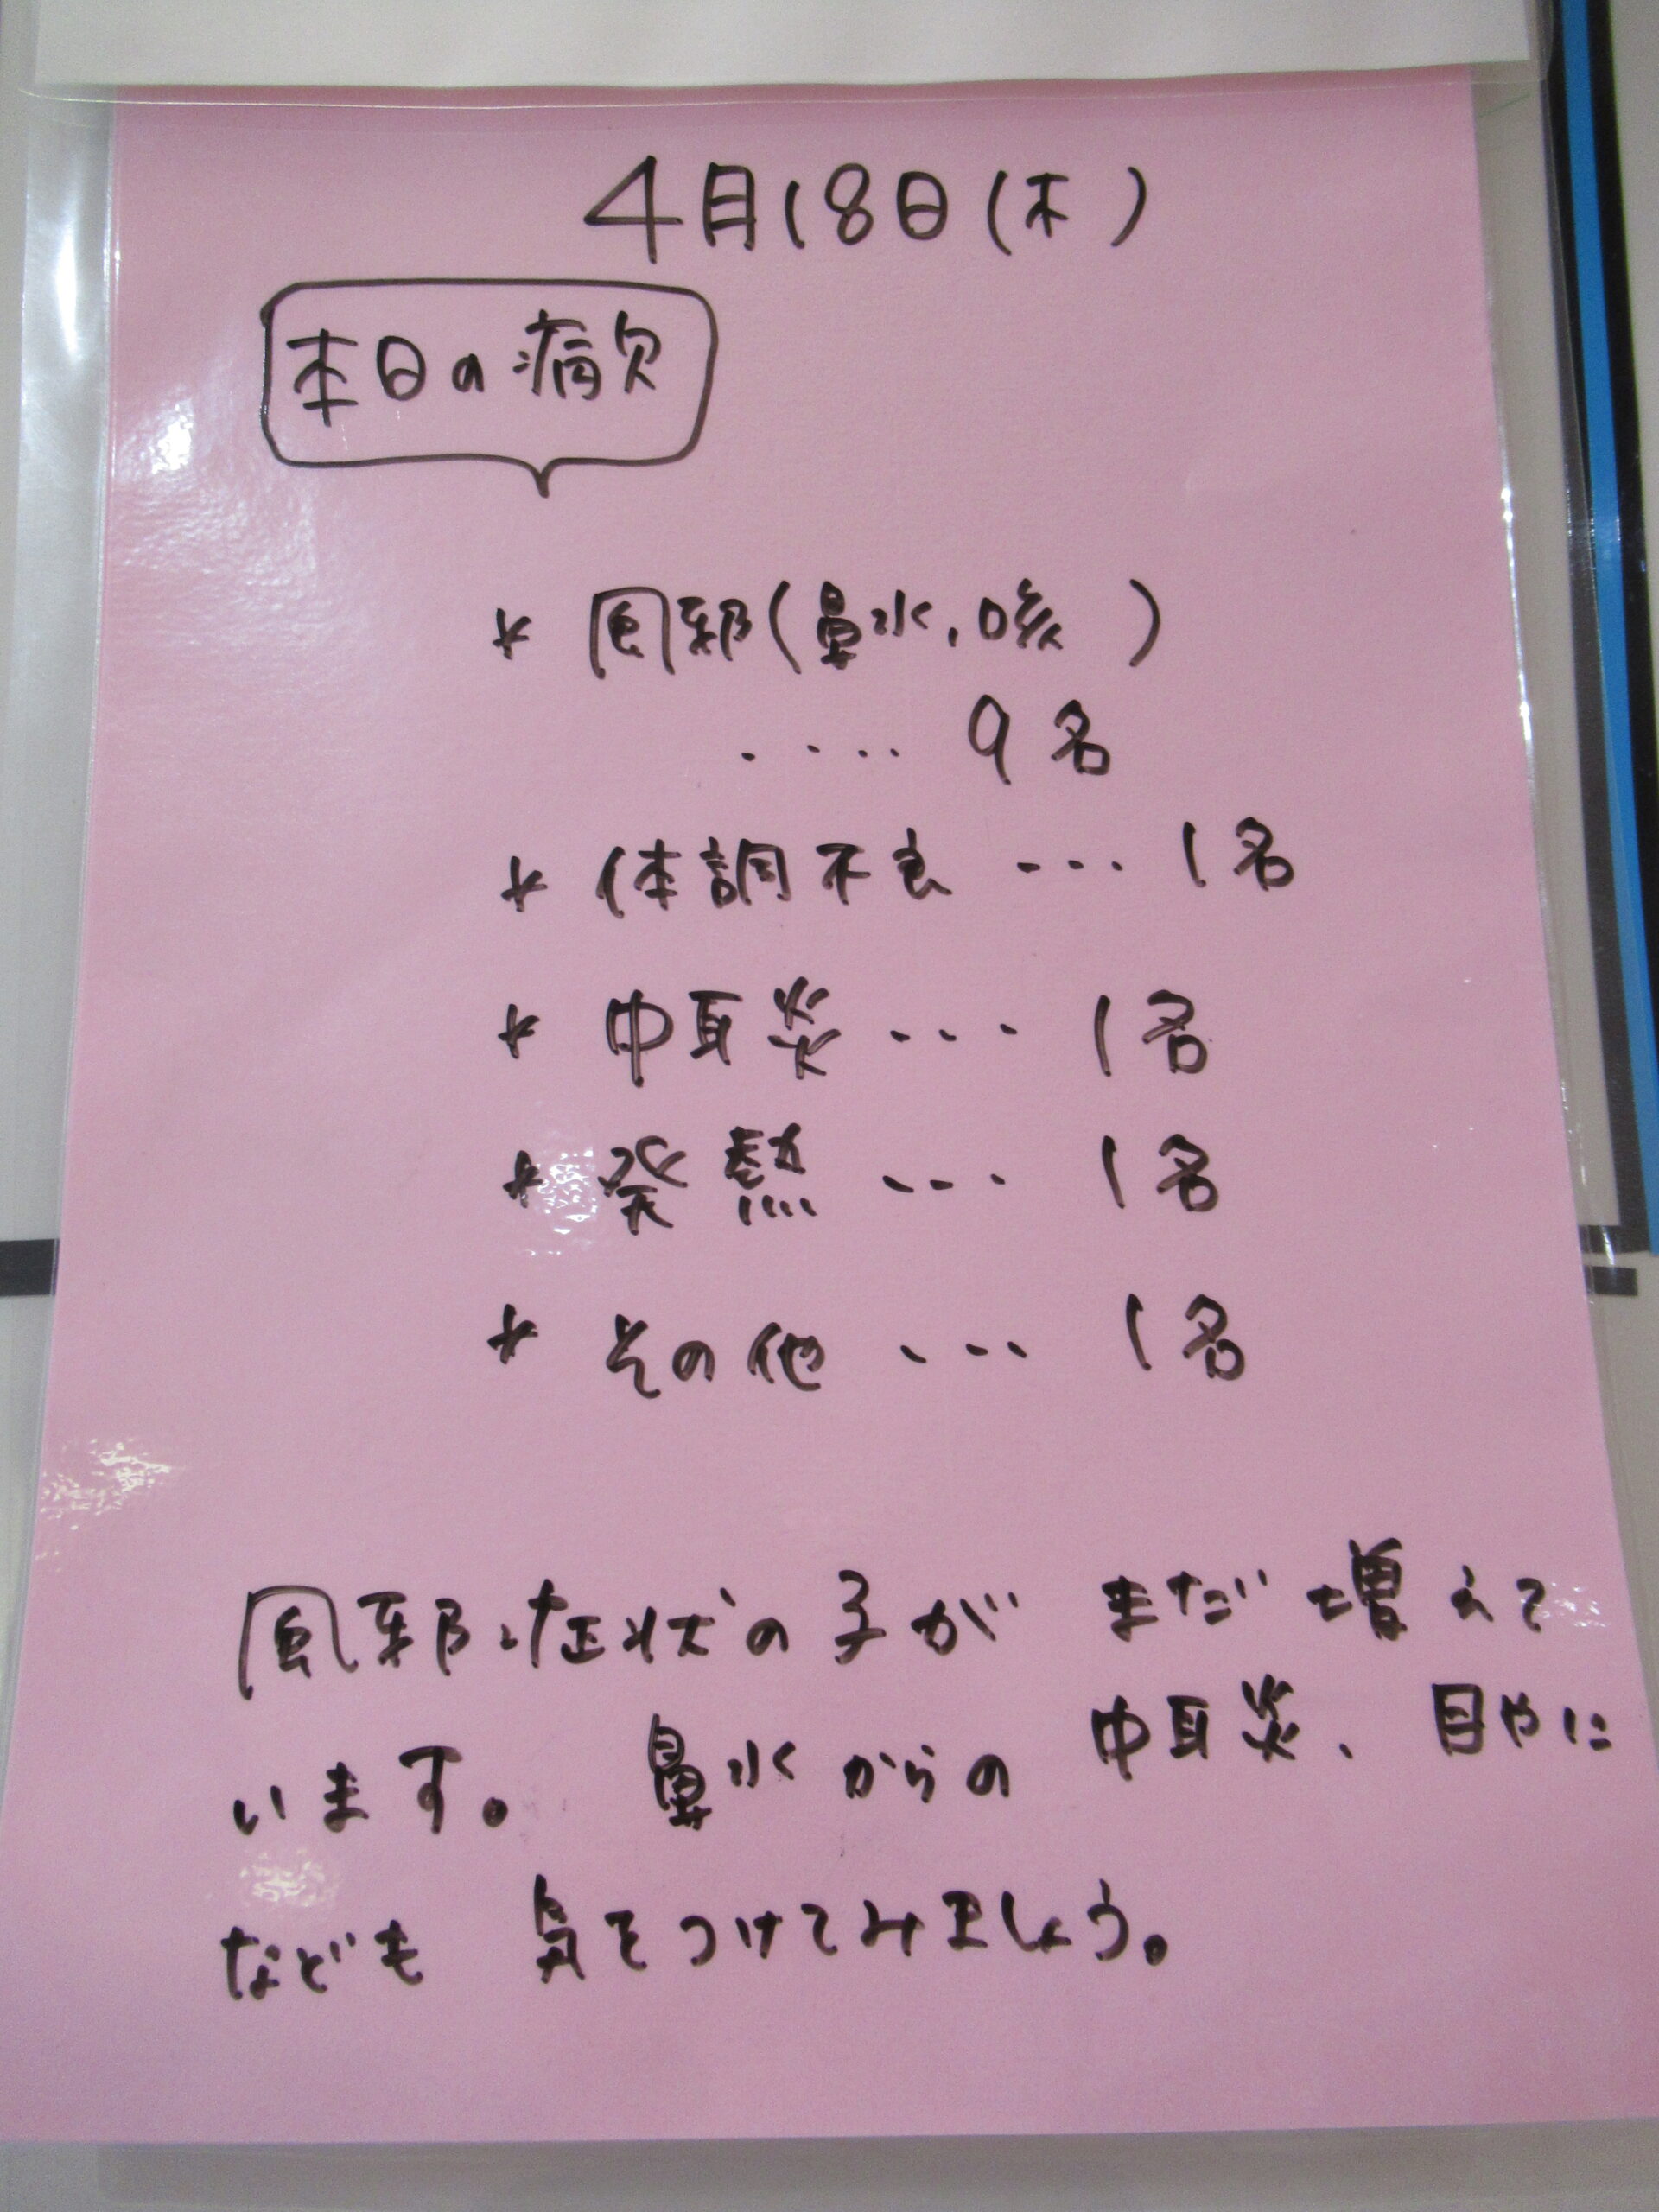 4月18日(木)
本日の病欠
* 風邪(鼻水,咳 )
････ 9名
* 体調不良 ･･･ 1名
* 中耳炎 ･･･ 1名
* 発熱 ･･･ 1名
* その他 ･･･ 1名
風邪症状の子が まだ増えて
います。 鼻水からの 中耳炎、目やに
なども 気をつけてみましょう。